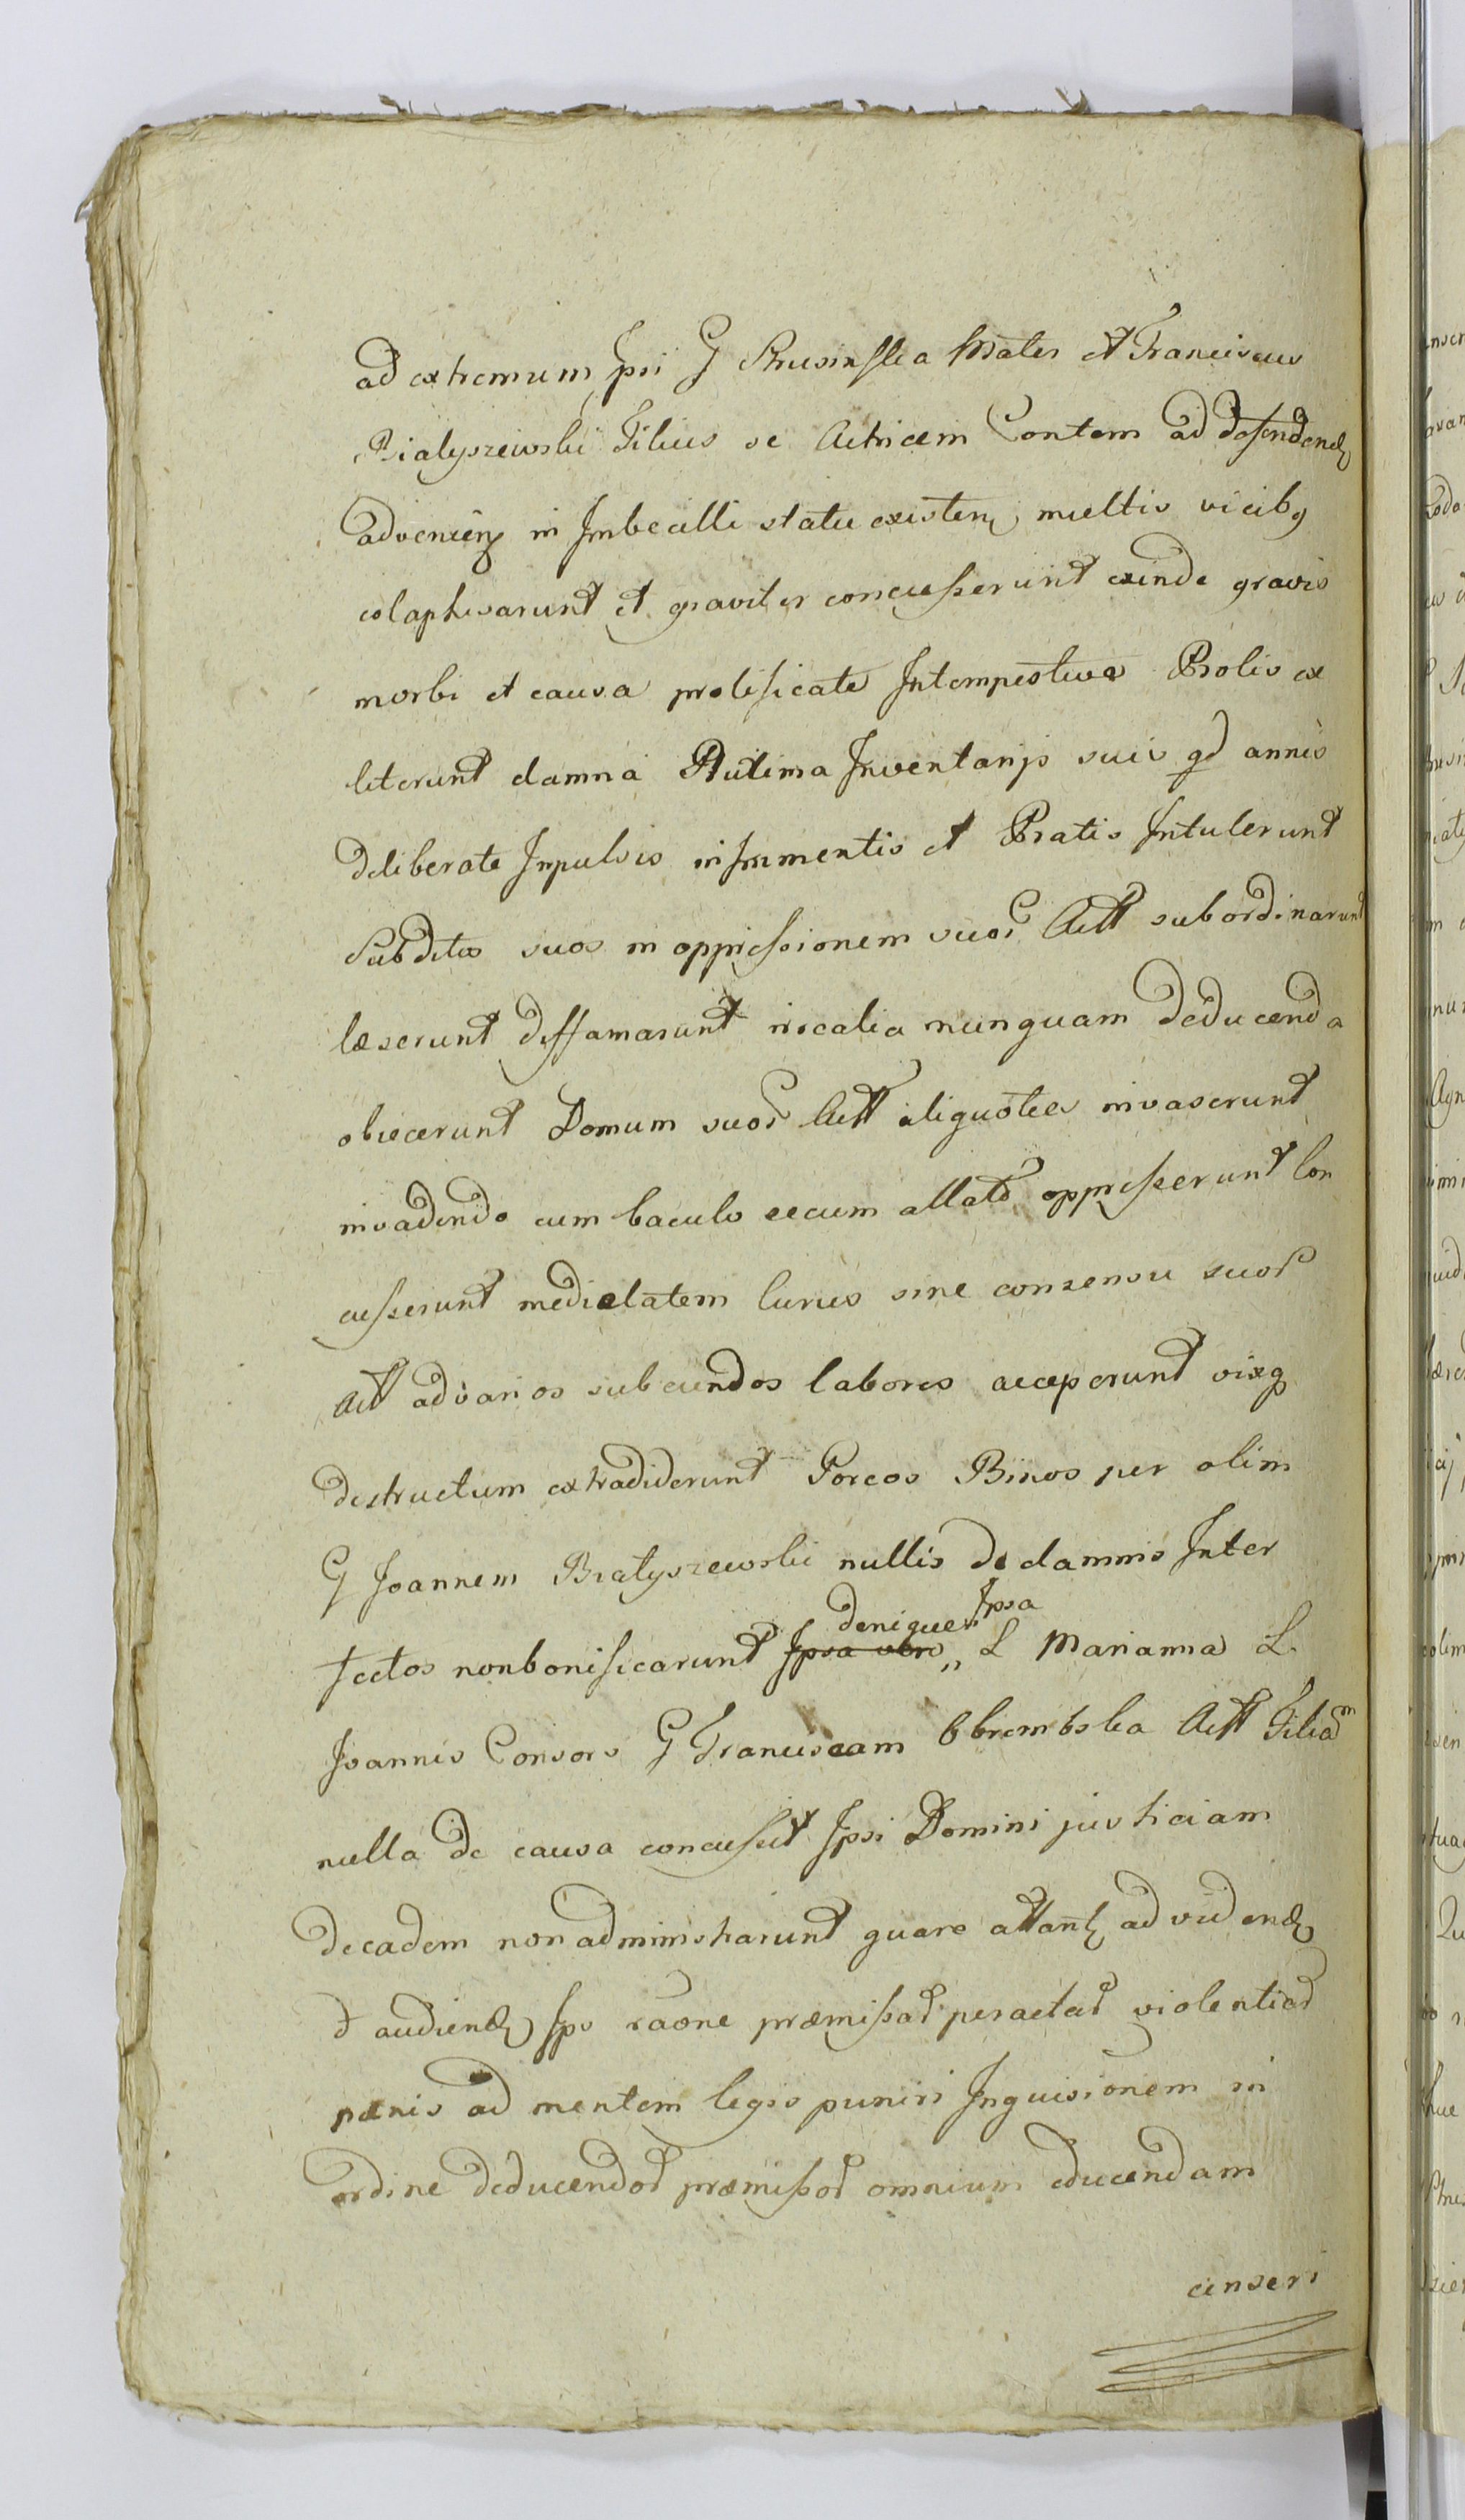 ad extremum Ipsi G Prusinska Mater et Franciscus
Bialyszewski Filius se Actricem Contem ad defendend
advenien in Imbecilli statu existen multis vicibq
colaphisarunt et graviter concusserunt exinde gravis
morbi et causa prolificate Intempestiva Prolis ex
literunt damna Plutima Inventarijs suis qd annis
deliberate Impulsis in frumentis et Pratis Intulerunt
Subditos suos in oppressionem suor Actt subordinarunt
læserunt diffamarunt niscalia nunquam deducenda
obiecerunt Domum suor Actt aliquoties invaserunt
invadendo cum baculo secum allato oppresserunt Con
cusserunt medietatem Currus sine consensu suor
Actt ad varios subeundos labores acceperunt vixq
destructum extradiderunt Porcos Binos per olim
G Joannem Bialyszewski nullis de damnis Inter
denique Ipsa
fectos non bonificarunt Ipsa vero „ L Marianna L
Joannis Consors G Franciscam Obrembska Actt Filiam
nulla de causa concussit Ipsi Domini justiciam
de eadem non administrarunt quare attant ad vidend
et audiend Ipos raone præmissar peractar violentiar
pænis ad mentem legis puniri Inquisionem in
ordine deducendor præmissor omnium educendam
censeri